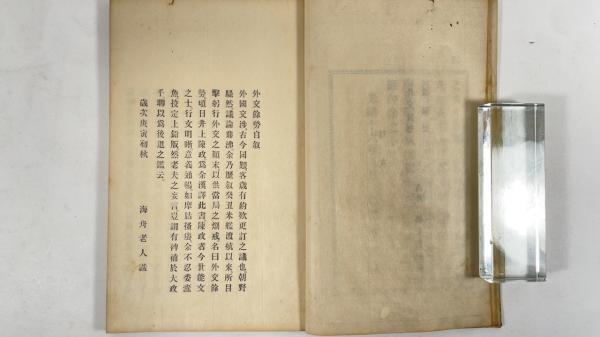 外交餘勢自敍
外國交涉古今同難客歲有約欵更訂之議也朝野
騷然議論鼎沸余乃歷敍癸丑米艦渡航以來所目
擊躬行外交之顚末以供當局之烱戒名曰外交餘
勢頃日井上陳政爲余漢譯此書陳政者今世能文
之士行文明晰意義通暢如摩詰搔癢余不忍委蠹
魚授定上鉛版然老夫之妄言豈謂有裨補於大政
乎聊以爲後進之鑑云
歲次庚寅初秋
海舟老人識